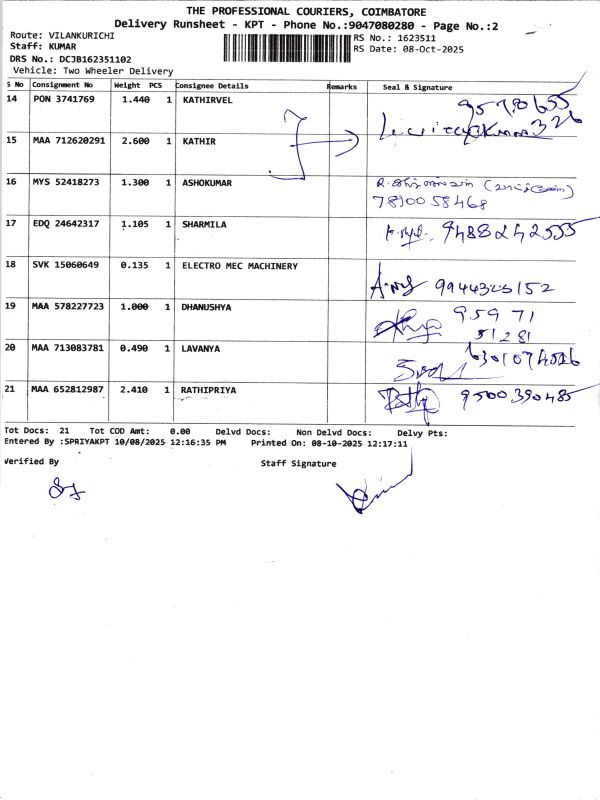 THE PROFESSIONAL COURIERS, COIMBATORE
Delivery Runsheet - KPT - Phone No.:9047080280 - Page No.:2
Route: VILANKURICHI
RS No.: 1623511
Staff: KUMAR
RS Date: 08-Oct-2025
DRS No.: DCJB162351102
Vehicle: Two Wheeler Delivery
S No Consignment No Weight PCS Consignee Details Remarks Seal & Signature
14 PON 3741769 1.440 1 KATHIRVEL
15 MAA 712620291 2.600 1 KATHIR
16 MYS 52418273 1.300 1 ASHOKUMAR
7810058468
17 EDQ 24642317 1.105 1 SHARMILA 9488242555
18 SVK 15060649 0.135 1 ELECTRO MEC MACHINERY
9944326152
19 MAA 578227723 1.000 1 DHANUSHYA 95971
51281
20 MAA 713083781 0.490 1 LAVANYA
21 MAA 652812987 2.410 1 RATHIPRIYA 9500390485
Tot Docs: 21 Tot COD Amt: 0.00 Delvd Docs: Non Delvd Docs: Delvy Pts:
Entered By :SPRIYAKPT 10/08/2025 12:16:35 PM Printed On: 08-10-2025 12:17:11
Verified By Staff Signature